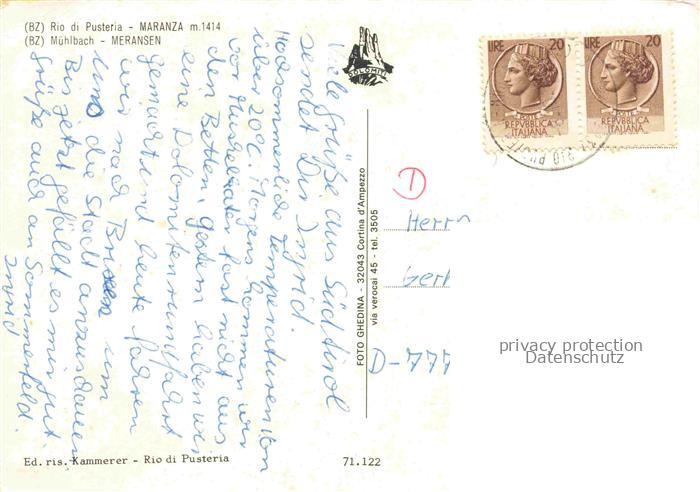 (BZ) Rio di Pusteria - MARANZA m.1414
(BZ) Mühlbach - MERANSEN
DOLOMITI
LIRE 20
POSTE
REPVBBLICA
ITALIANA
LIRE 20
POSTE
REPVBBLICA
ITALIANA
Viele Grüße aus Südtirol
sendet Dir Ingrid.
Hochsommerliche Temperaturen von
über 20C. Morgens kommen wir
vor Muskelkater fast nicht aus
den Betten. Gestern haben wir
eine Dolomitenrundfahrt
gemacht und heute fahren
wir nach Brixen um
uns die Stadt anzuschauen
Bis jetzt gefällt es mir gut.
Grüße auch an Sommerfeld.
Ingrid
FOTO GHEDINA - 32043 Cortina d'Ampezzo
via verocai 45 - tel. 3505
Herrn
Gert
D-777
privacy protection
Datenschutz
Ed. ris. Kammerer - Rio di Pusteria
71.122